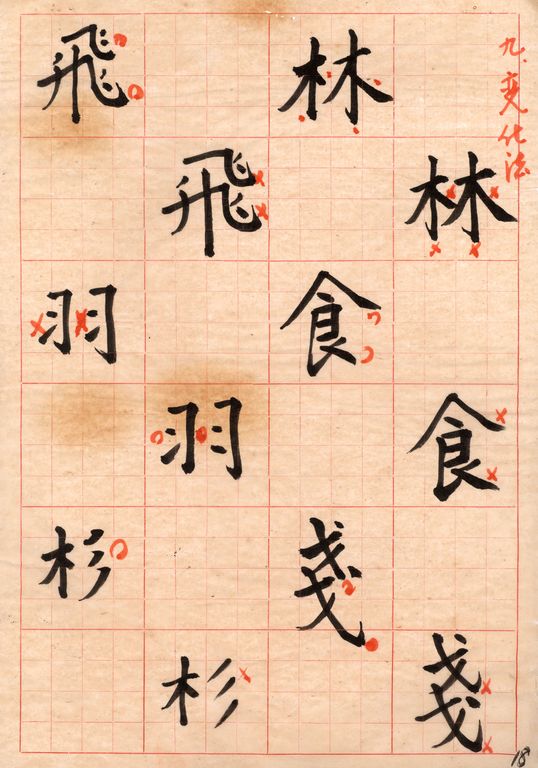 九、变化法
林
食
戔
林
食
戔
飛
羽
杉
飛
羽
杉
18